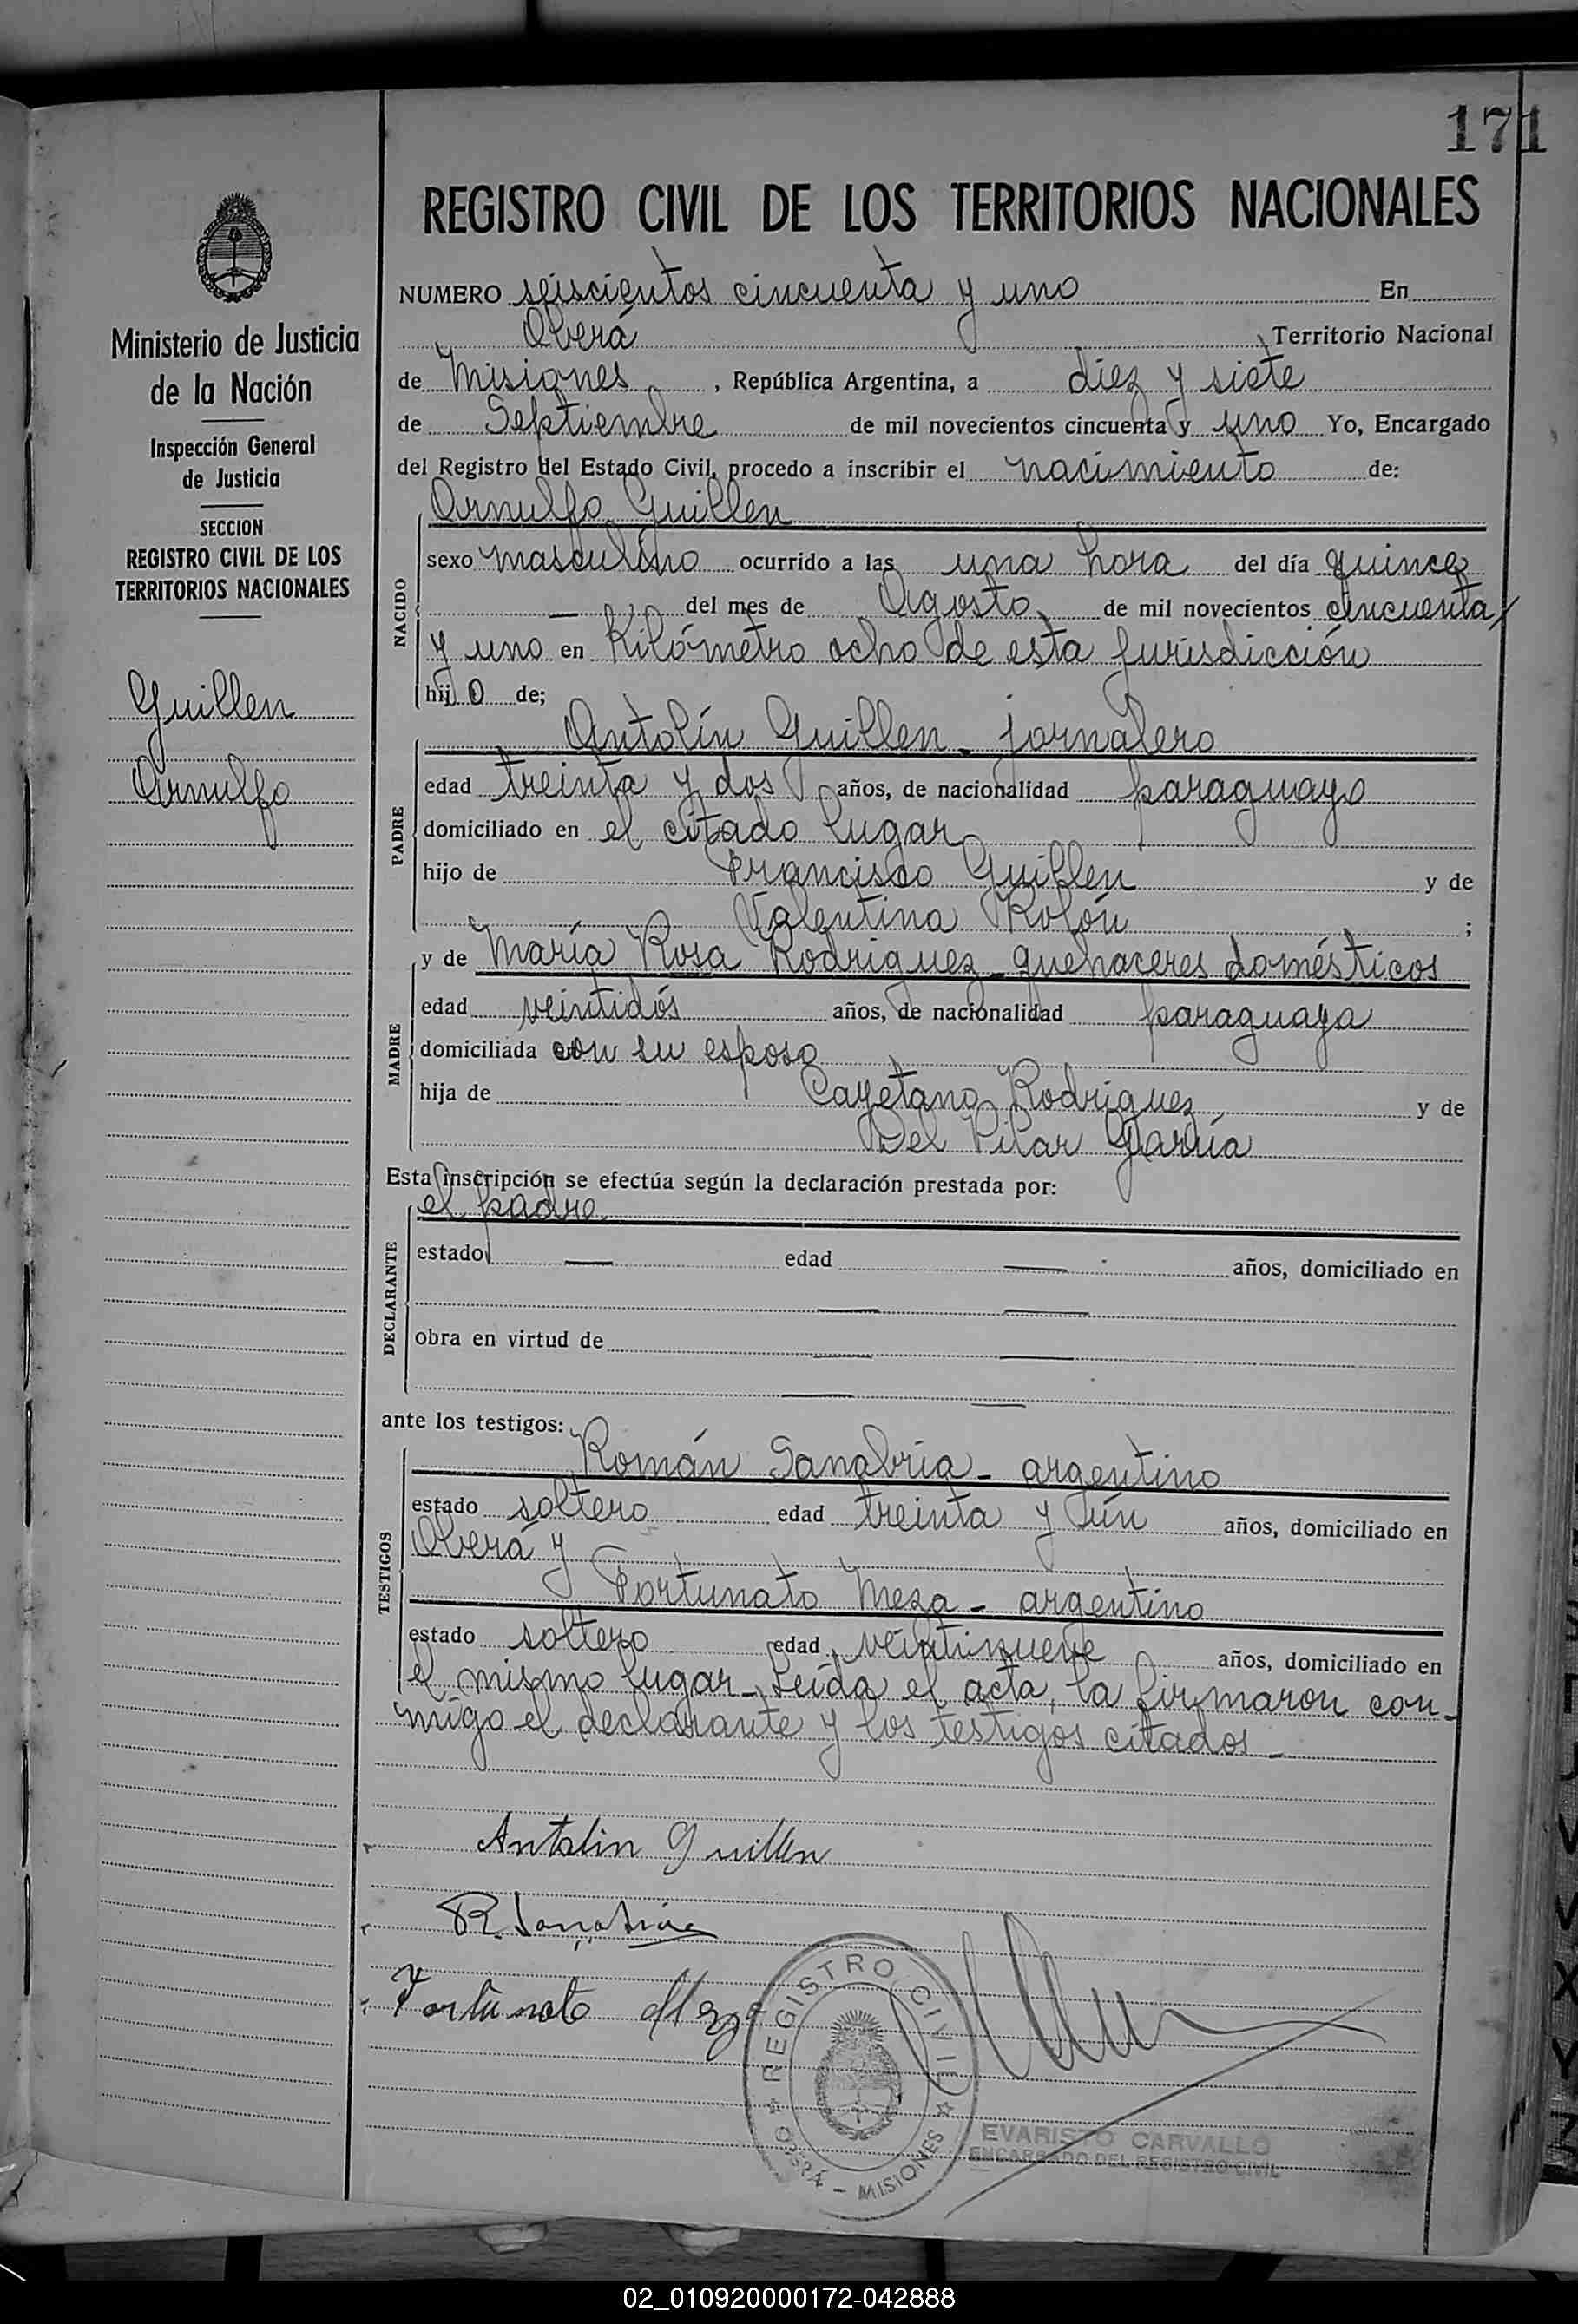 171
REGISTRO CIVIL DE LOS TERRITORIOS NACIONALES
Ministerio de Justicia
de la Nación
Inspección General
de Justicia
SECCION
REGISTRO CIVIL DE LOS
TERRITORIOS NACIONALES
Guillen
Arnulfo
NUMERO seiscientos cincuenta y uno En
Oberá Territorio Nacional
de Misiones, República Argentina, a diez y siete
de Septiembre de mil novecientos cincuenta y uno Yo, Encargado
del Registro del Estado Civil, procedo a inscribir el nacimiento de:
NACIDO
Arnulfo Guillen
sexo masculino ocurrido a las una hora del día quince
— del mes de Agosto de mil novecientos cincuenta
y uno en Kilómetro ocho de esta jurisdicción
hijo de;
PADRE
Antolín Guillen - jornalero
edad treinta y dos años, de nacionalidad paraguayo
domiciliado en el citado lugar
hijo de Francisco Guillen y de
Valentina Rolón ;
MADRE
y de María Rosa Rodriguez - quehaceres domésticos
edad veintidós años, de nacionalidad paraguaya
domiciliada con su esposo
hija de Cayetano Rodriguez y de
Del Pilar García
Esta inscripción se efectúa según la declaración prestada por:
DECLARANTE
el padre
estado — edad — años, domiciliado en
— —
obra en virtud de — —
— —
ante los testigos:
TESTIGOS
Román Sanabria - argentino
estado soltero edad treinta y ún años, domiciliado en
Oberá y
Fortunato Meza - argentino
estado soltero edad veintinueve años, domiciliado en
el mismo lugar - Leída el acta, la firmaron con-
migo el declarante y los testigos citados -
Antolin Guillen
R. Sanabria
Fortunato Meza
REGISTRO CIVIL
OBERÁ - MISIONES
EVARISTO CARVALLO
ENCARGADO DEL REGISTRO CIVIL
02_010920000172-042888